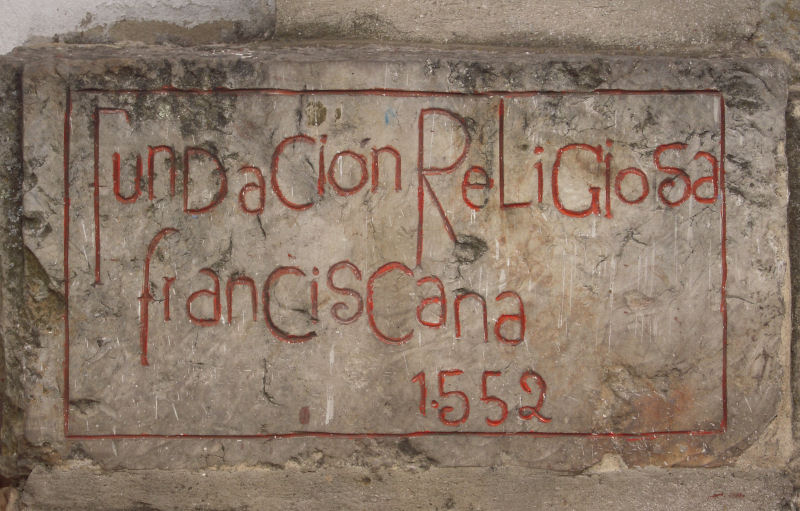 Fundación Religiosa
franciscana
1.552